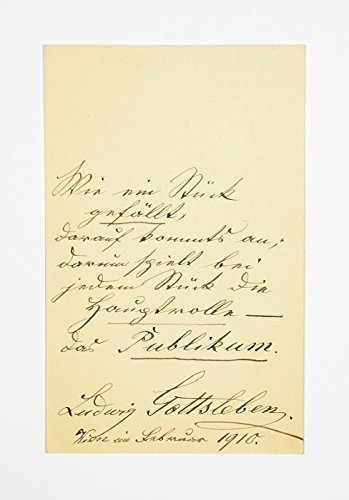 Wie ein Stück
gefällt,
darauf kommts an;
darum spielt bei
jedem Stück die
Hauptrolle —
das Publikum.
Ludwig Gottsleben.
Wien im Februar 1910.